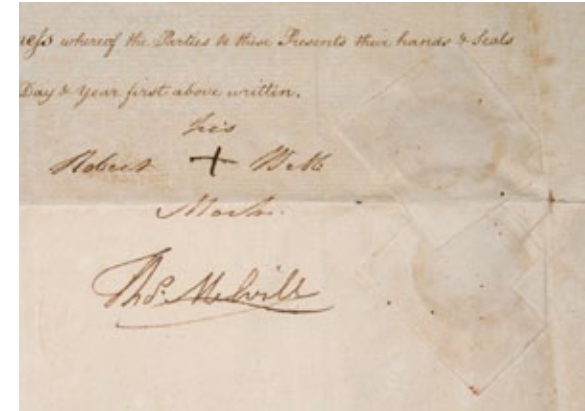 ness whereof the Parties to these Presents their hands & Seals
Day & Year first above written.
his
Robert + Webb
Mark.
Thos. Melvill